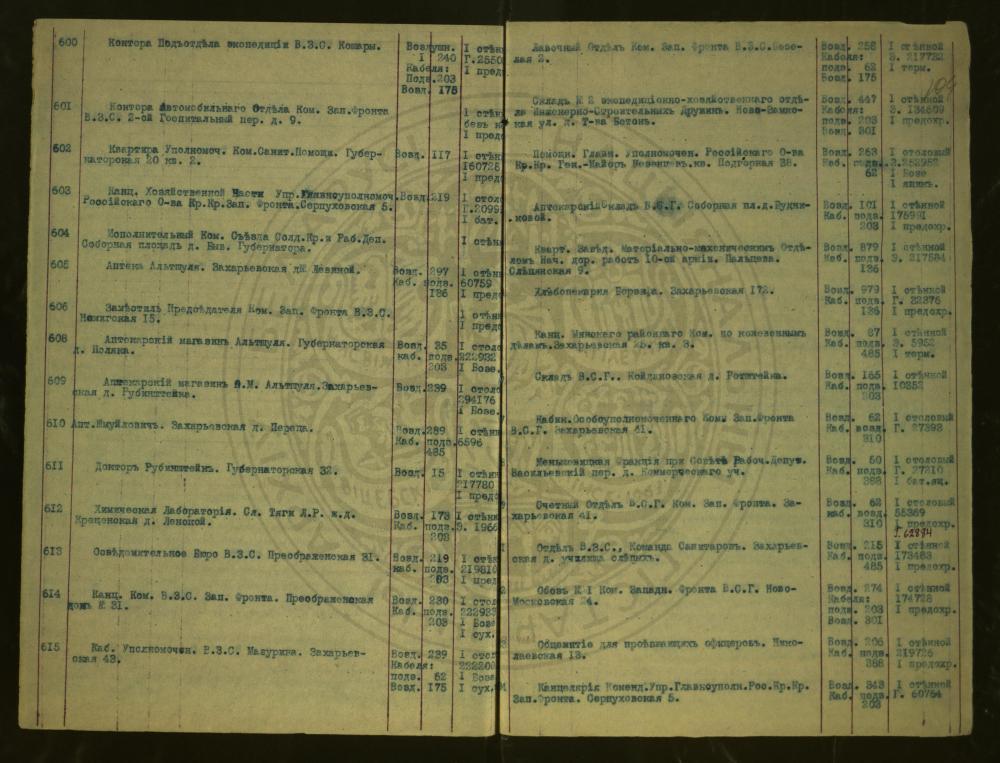 600
Контора Подъотдѣла экспедиціи В.З.С. Комары.
Воздушн.
I 240
Кабеля:
Подв.203
Возд. 175
I стѣн
Г.2550
I пред
601
Контора Автомобильнаго Отдѣла Ком. Зап.Фронта
В.З.С. 2-ой Госпитальный пер. д. 9.
I стѣн
безъ н
I пред
602
Квартира Уполномоч. Ком.Санит.Помощи. Губер-
наторская 20 кв. 2.
Возд. 117
I стѣн
160728
I пред
603
Канц. Хозяйственной Части Упр.Главноуполномоч.
Россійскаго О-ва Кр.Кр.Зап. Фронта.Серпуховская 5.
Возд.219
I столо
Г.2099
I бат.
604
Исполнительный Ком. Съѣзда Солд.Кр.и Раб.Деп.
Соборная площадь д. Быв. Губернатора.
I стѣн
605
Аптека Альтшуля. Захарьевская д. Левиной.
Возд. 297
Каб. подв.
136
I стѣн
60759
I пред
606
Замѣстит. Предсѣдателя Ком. Зап. Фронта В.З.С.
Немигская 15.
I стѣн
I пред
608
Аптекарскій магазинъ Альтшуля. Губернаторская
д. Поляка.
Возд. 35
каб. подв.
203
I столо
222932
I Бозе
609
Аптекарскій магазинъ Э.М. Альтшуля.Захарьев-
ская д. Рубинштейна.
Возд.239
I столо
294176
I Бозе.
610 Апт.Шмуйловичъ. Захарьевская д. Переца.
Возд.289
Каб. подв.
485
I стѣн
6596
611
Докторъ Рубинштейнъ. Губернаторская 32.
Возд. 15
I стѣн
217780
I пред
612
Химическая Лабораторія. Сл. Тяги Л.Р. ж.д.
Крещенская д. Ленской.
Возд. 173
Каб. подв.
203
I стѣнн
Э. 1966
613
Освѣдомительное Бюро В.З.С. Преображенская 31.
Возд. 219
каб. подв.
203
I стѣн
219810
I пред
614
Канц. Ком. В.З.С. Зап. Фронта. Преображенская
домъ № 31.
Возд. 230
Каб. подв.
203
I стол
222933
I Бозе
I сух.
615
Каб. Уполномочен. В.З.С. Мазурина. Захарьев-
ская 43.
Возд. 239
Кабеля:
подв. 62
Возд. 175
I стол
222200
I Бозе
I сух.
Лавочный Отдѣлъ Ком. Зап. Фронта В.З.С.Весе-
лая 2.
Возд. 258
Кабеля:
подв. 62
Возд. 175
I стѣнной
Э. 217722
I терм.
Складъ № 2 экспедиціонно-хозяйственнаго отдѣ-
ла Инженерно-Строительныхъ Дружинъ. Ново-Замко-
вая ул. д. Т-ва Бетонъ.
Возд. 447
Кабеля:
подв. 203
Возд. 301
I стѣнной
Э. 134609
I предохр.
Помощн. Главн. Уполномочен. Россійскаго О-ва
Кр.Кр. Ген.-Майоръ Веденцевъ.кв. Подгорная 38.
Возд. 263
Каб. подв.
62
I столовый
Э.252952
I Бозе
I линм.
Аптекарскій складъ В.С.Г. Соборная пл.д.Рудни-
ковой.
Возд. 101
Каб. подв.
203
I стѣнной
175991
I предохр.
Кварт. Завѣд. Матеріально-механическимъ Отдѣ-
ломъ Нач. дор. работъ 10-ой арміи. Пальцева.
Слѣпянская 9.
Возд. 879
Каб. подв.
136
I стѣнной
Э. 217584
Хлѣбопекарня Борзица. Захарьевская 172.
Возд. 979
Каб. подв.
136
I стѣнной
Г. 22376
I предохр.
Канц. Минскаго районнаго Ком. по кожевеннымъ
дѣламъ.Захарьевская 25. кв. 3.
Возд. 87
Каб. подв.
485
I стѣнной
Э. 5952
I терм.
Складъ В.С.Г.. Койдановская д. Ротштейна.
Возд. 165
Каб. подв.
203
I стѣнной
10352
Кабин.Особоуполномоченнаго Ком. Зап.Фронта
В.С.Г. Захарьевская 41.
Возд. 62
Каб. возд.
310
I столовый
Г. 27393
Меньшевицкая Фракція при Совѣтѣ Рабоч.Депут.
Васильевскій пер. д. Коммерческаго уч.
Возд. 50
Каб. подв.
388
I столовый
Г. 27210
I бат.ящ.
Счетный Отдѣлъ В.С.Г. Ком. Зап. Фронта. За-
харьевская 41.
Возд. 62
каб. возд.
310
I столовый
55369
I предохр.
Г.62894
Отдѣлъ В.З.С., Команда Санитаровъ. Захарьев-
ская д. училища слѣпыхъ.
Возд. 215
Каб. подв.
485
I стѣнной
173463
I предохр.
Обозъ № I Ком. Западн. Фронта В.С.Г. Ново-
Московская 24.
Возд. 274
Кабеля:
подв. 203
Возд. 301
I стѣнной
174728
I предохр.
Общежитіе для проѣзжающихъ офицеровъ. Нико-
лаевская 13.
Возд. 206
Каб. подв.
388
I стѣнной
219725
I предохр.
Канцелярія Коменд.Упр.Главноуполн.Рос.Кр.Кр.
Зап.Фронта. Серпуховская 5.
Возд. 343
Каб. подв.
203
I стѣнной
Г. 60764